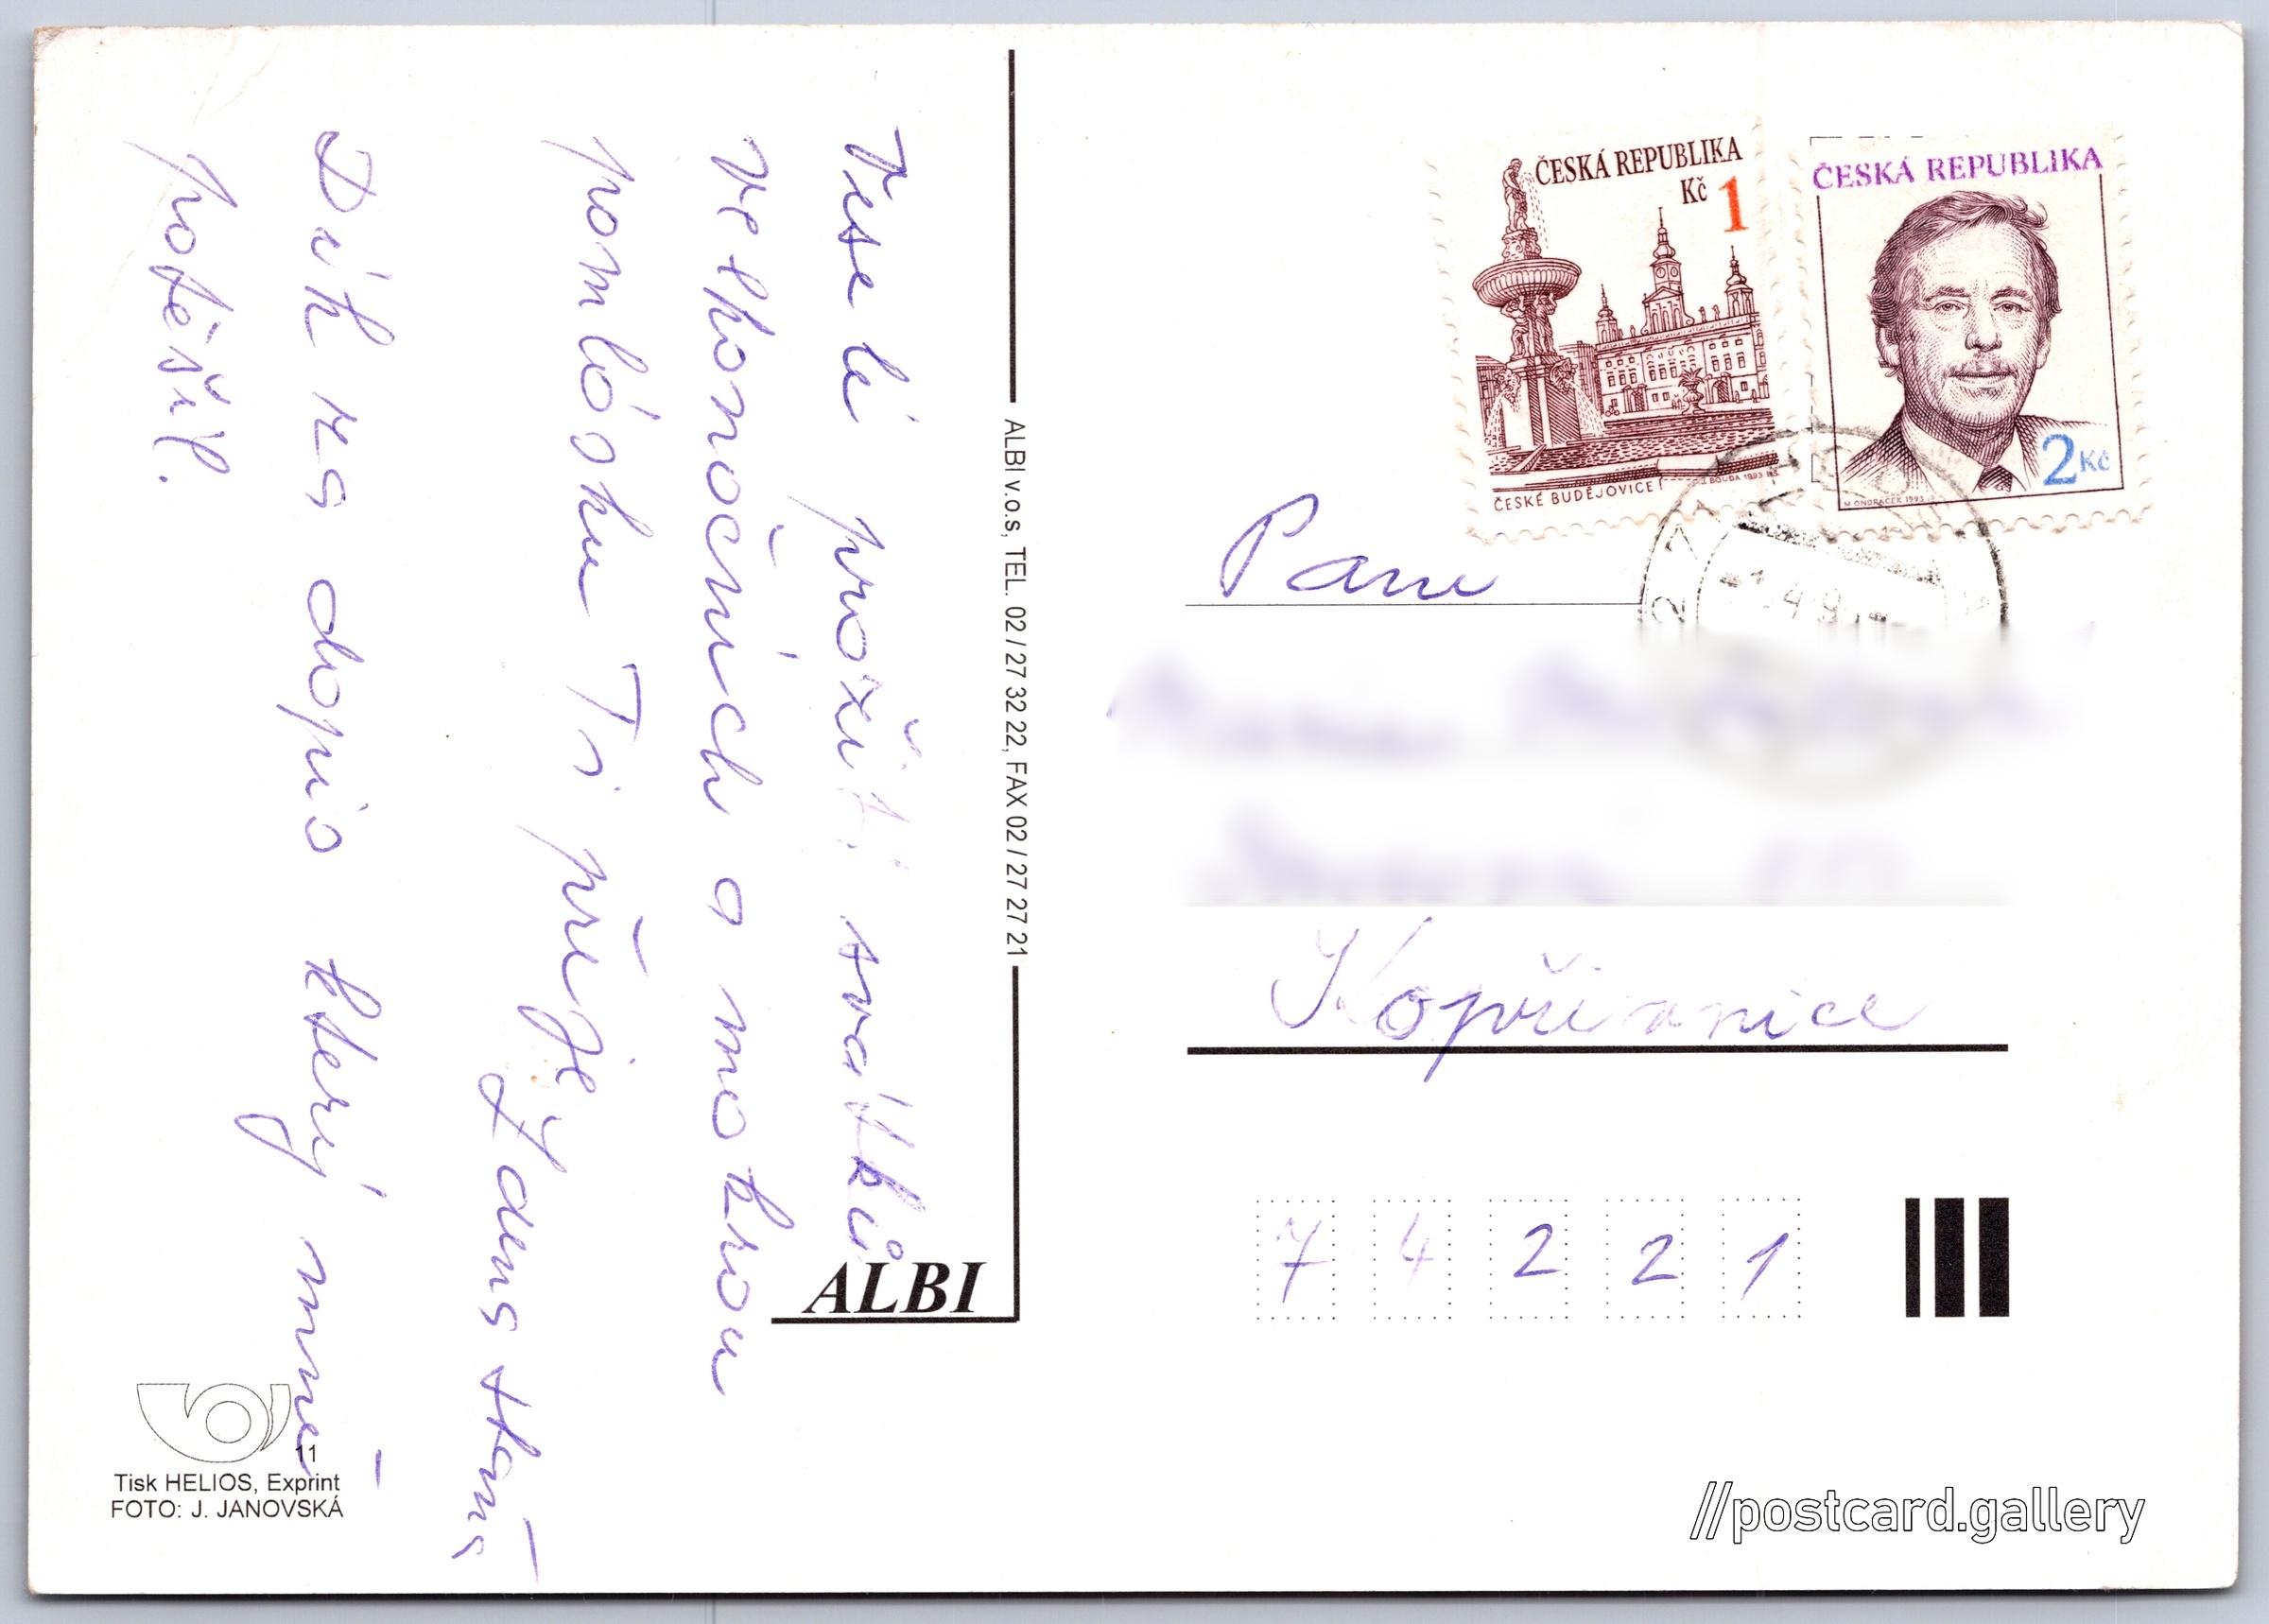 Veselé prožití svátků
velkonočních a mokrou
pomlósku Ti přeje
Dík za dopis který mně
potěšil.
ALBI v.o.s, TEL. 02 / 27 32 22, FAX 02 / 27 27 21
ALBI
11
Tisk HELIOS, Exprint
FOTO: J. JANOVSKÁ
ČESKÁ REPUBLIKA
Kč 1
ČESKÉ BUDĚJOVICE
J. BOUDA 1993
ČESKÁ REPUBLIKA
2 Kč
M. ONDRÁČEK 1993
Paní
Kopřivnice
7 4 2 2 1
//postcard.gallery